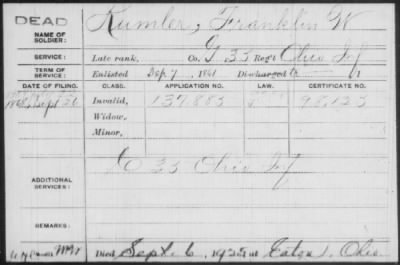 DEAD
NAME OF SOLDIER: Kumler, Franklin W
SERVICE: Late rank, Co. G 35 Reg't Ohio Inf
TERM OF SERVICE: Enlisted Sep 7, 1861 Discharged
DATE OF FILING. CLASS. APPLICATION NO. LAW. CERTIFICATE NO.
Sept 26 Invalid, 137883 98,123
Widow,
Minor,
ADDITIONAL SERVICES: G 35 Ohio Inf
REMARKS:
Died Sept. 6, 1925 at Eaton, Ohio